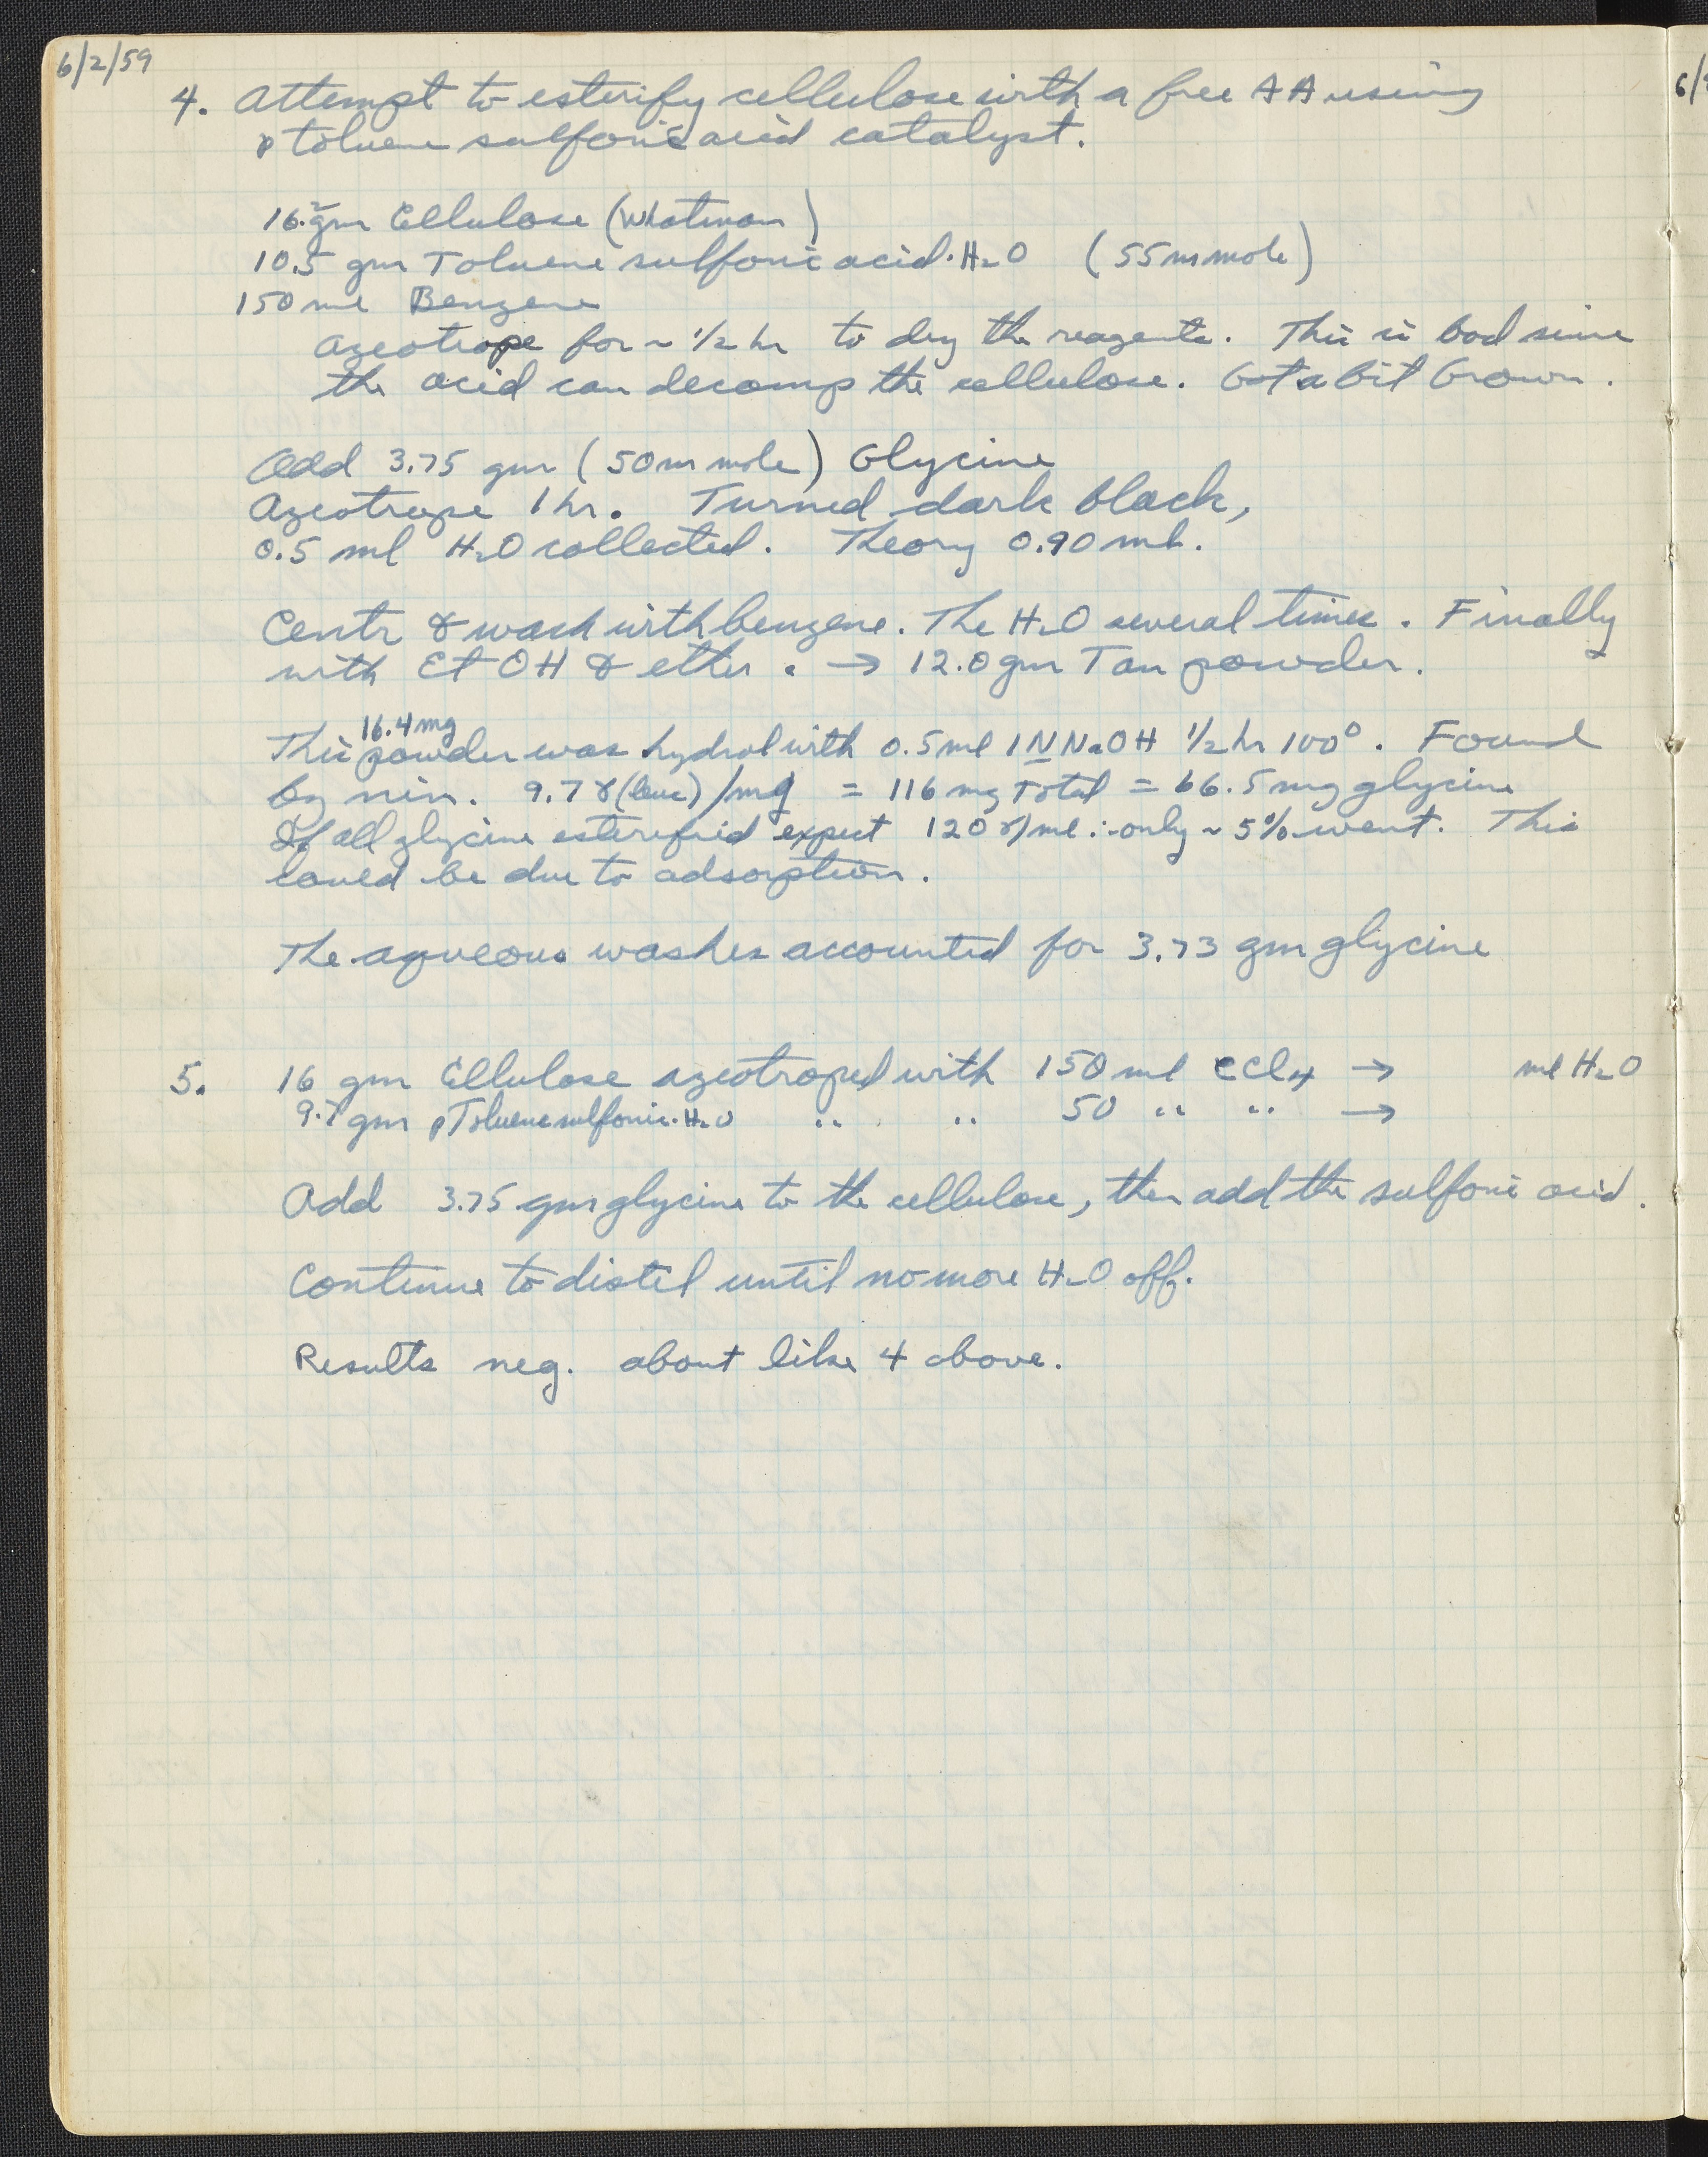 6/2/59
4. Attempt to esterify cellulose with a free AA using
p toluene sulfonic acid catalyst.
16.2 gm Cellulose (Whatman)
10.5 gm Toluene sulfonic acid·H2O (55 mmole)
150 ml Benzene
Azeotrope for ~ 1/2 hr to dry the reagents. This is bad since
the acid can decomp the cellulose. Got a bit brown.
Add 3.75 gm (50 m mole) Glycine
Azeotrope 1 hr. Turned dark black,
0.5 ml H2O collected. Theory 0.90 ml.
Centr & wash with benzene. The H2O several times. Finally
with EtOH & ether. → 12.0 gm Tan powder.
16.4 mg
This powder was hydrol with 0.5 ml 1N NaOH 1/2 hr 100°. Found
by nin. 9.7 γ (leuc)/mg = 116 mg Total = 66.5 mg glycine
If all glycine esterified expect 120 γ/ml ∴ only ~ 5% went. This
could be due to adsorption.
The aqueous washes accounted for 3.73 gm glycine
5. 16 gm Cellulose azeotroped with 150 ml CCl4 → ml H2O
9.7 gm pToluenesulfonic·H2O " " 50 " " →
Add 3.75 gm glycine to the cellulose, then add the sulfonic acid.
Continue to distil until no more H2O off.
Results neg. about like 4 above.
6/